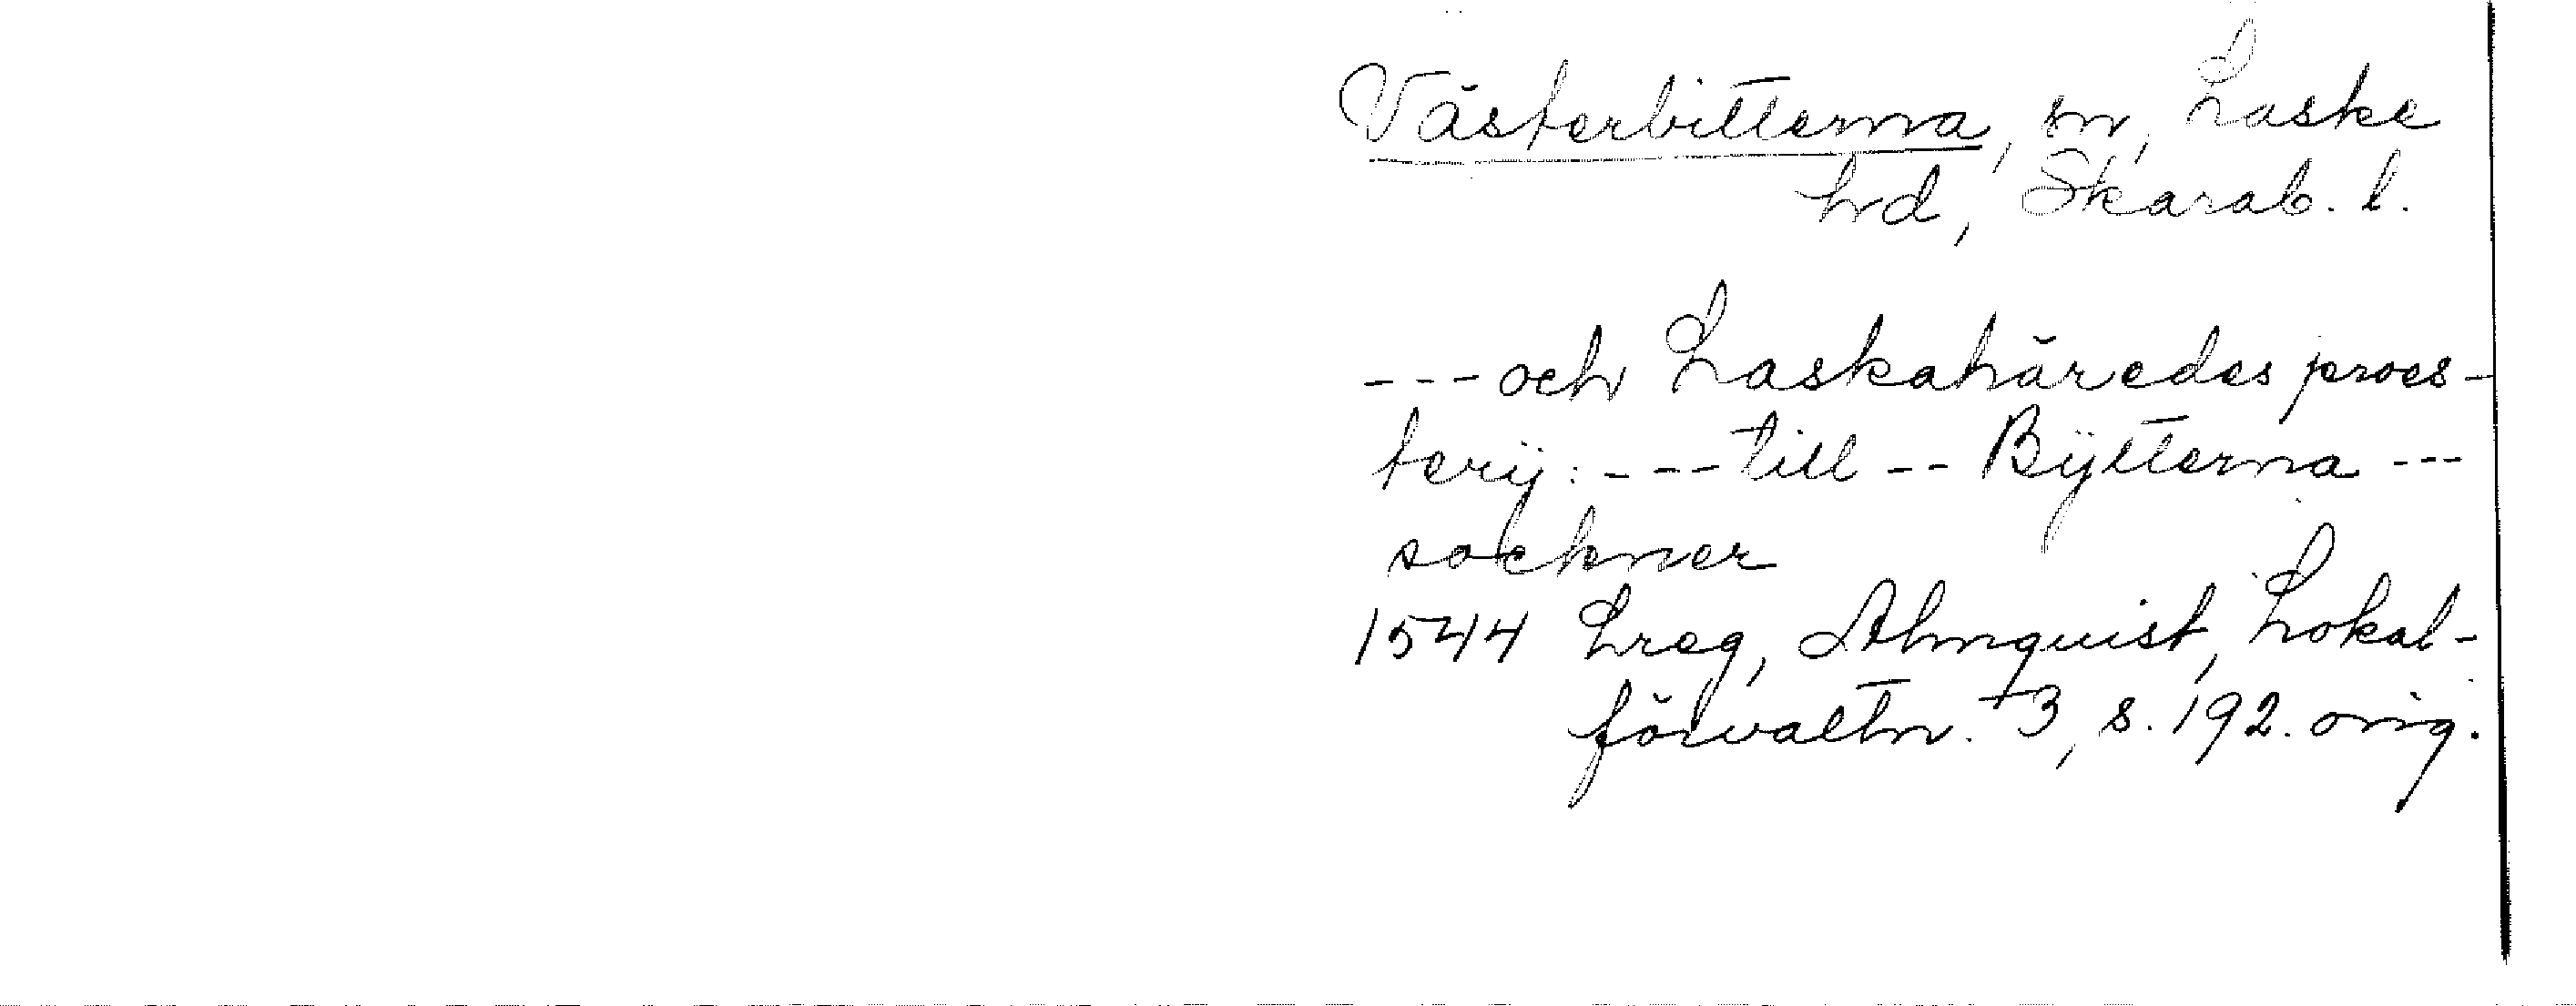 Västerbitterna, sn, Laske
hd, Skarab. l.
--- och Laskahäredes proes-
terij: --- till -- Bÿtterna ---
sochner
1544 Lreg, Almquist, Lokal-
förvaltn. 3, s. 192. orig.